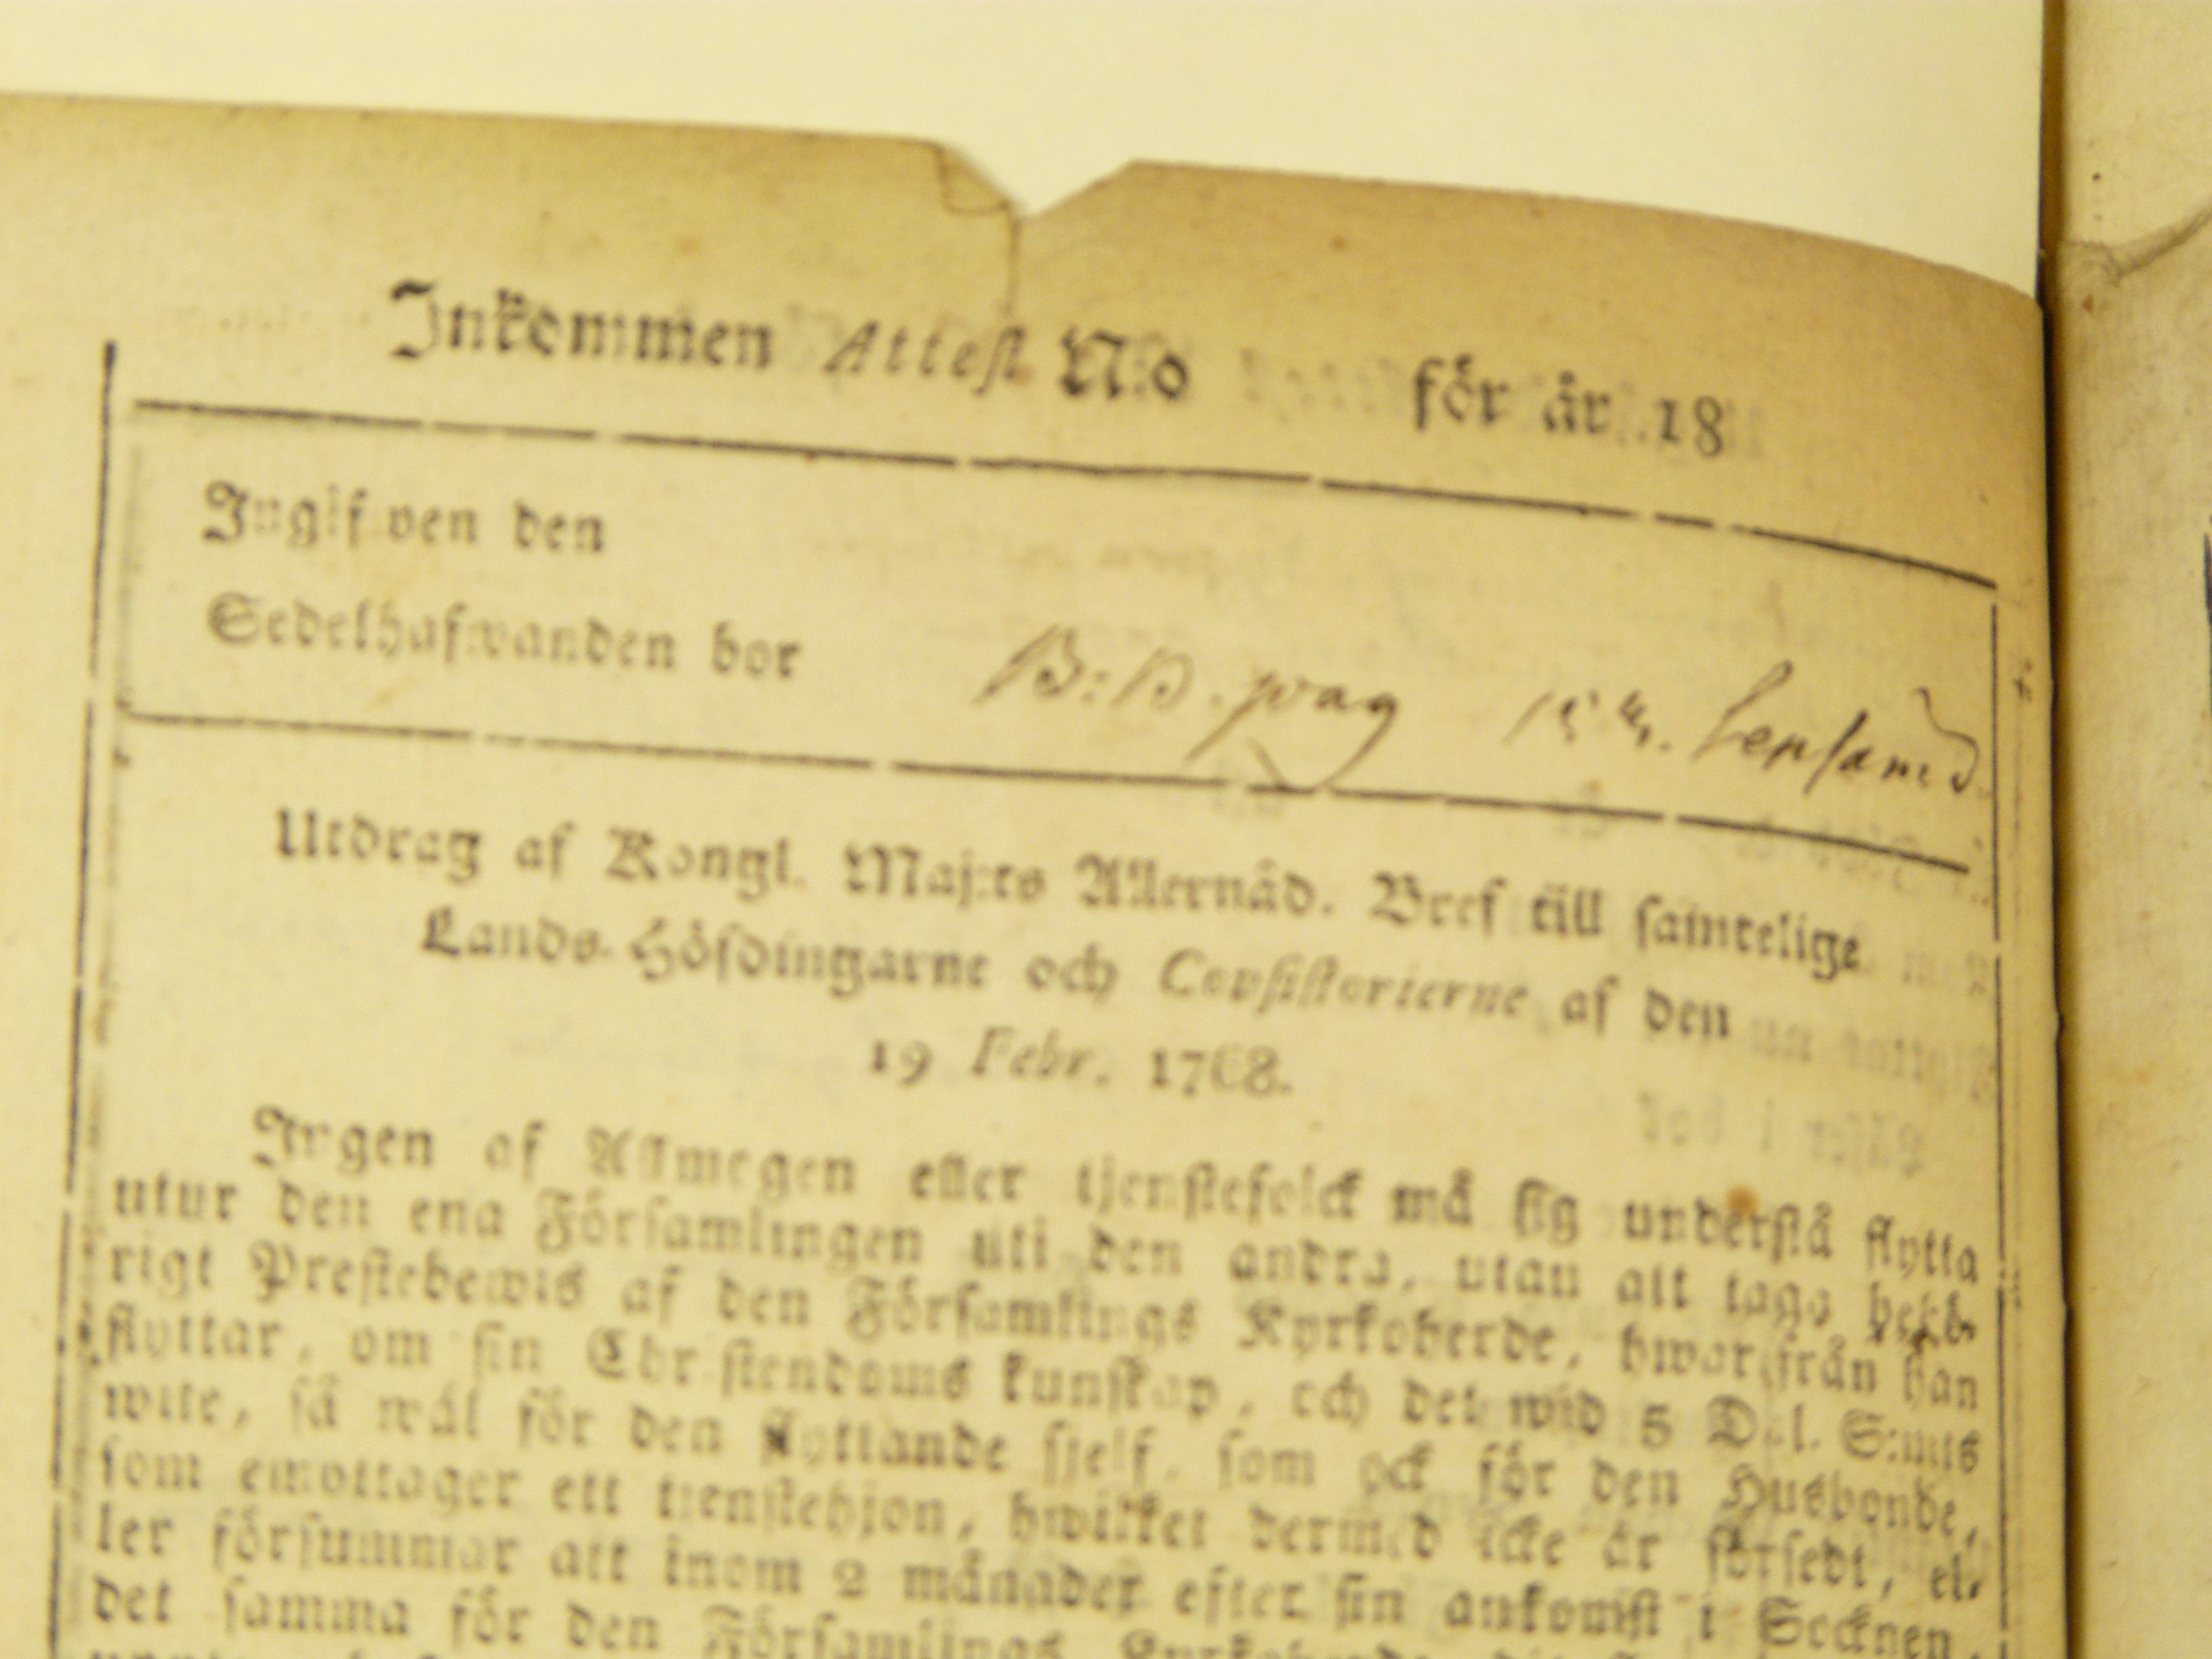 Inkommen Attest N:o för år 18
Ingifven den
Sedelhafwanden bor B: B. wag 15
Utdrag af Kongl. Maj:ts Allernåd. Bref till samtelige
Lands-Höfdingarne och Consistorierne af den
19 Febr. 1768.
Ingen af Allmogen eller tjenstefolck må sig understå flytta
utur den ena Församlingen uti den andra, utan att taga behö-
rigt Prestebewis af den Församlings Kyrkoherde, hworifrån han
flyttar, om sin Christendoms kunskap, och det wid 5 Dal. S:mts
wite, så wäl för den flyttande sjelf, som ock för den Husbonde,
som emottager ett tjenstehjon, hwilket dermed icke är försedt, el-
ler försummar att inom 2 månader efter sin ankomst i Socknen,
det samma för den Församlings Kyrkoherde